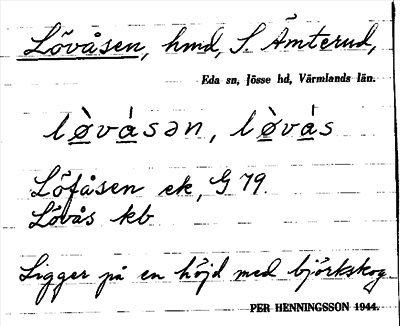 Lövåsen, hmd, S. Ämterud,
Eda sn, Jösse hd, Värmlands län.
lø̀vàsən, lø̀vàs
Löfåsen ek, G 79.
Lövås kb
Ligger på en höjd med björkskog
PER HENNINGSSON 1944.